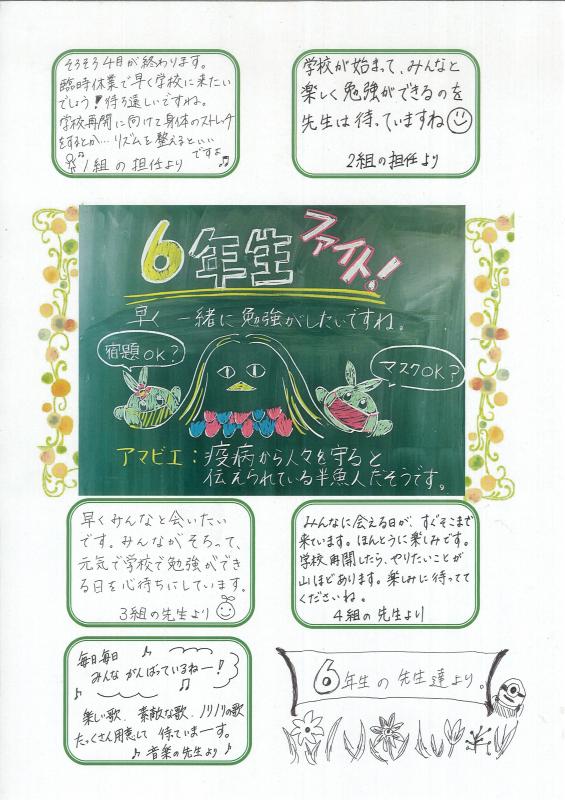 そろそろ4月が終わります。
臨時休業で早く学校に来たい
でしょう!待ち遠しいですね。
学校再開に向けて身体のストレッチ
をするとか…リズムを整えるといい
ですよ
1組の担任より
学校が始まって、みんなと
楽しく勉強ができるのを
先生は待っていますね
2組の担任より
6年生ファイト!
早く一緒に勉強がしたいですね。
宿題OK?
マスクOK?
アマビエ:疫病から人々を守ると
伝えられている半魚人だそうです。
早くみんなと会いたい
です。みんながそろって、
元気で学校で勉強ができ
る日を心待ちにしています。
3組の先生より
みんなに会える日が、すぐそこまで
来ています。ほんとうに楽しみです。
学校再開したら、やりたいことが
山ほどあります。楽しみに待ってて
くださいね。
4組の先生より
毎日毎日
みんながんばっているねー!
楽しい歌、素敵な歌、ノリノリの歌
たっくさん用意して待ていまーす。
音楽の先生より
6年生の先生達より。